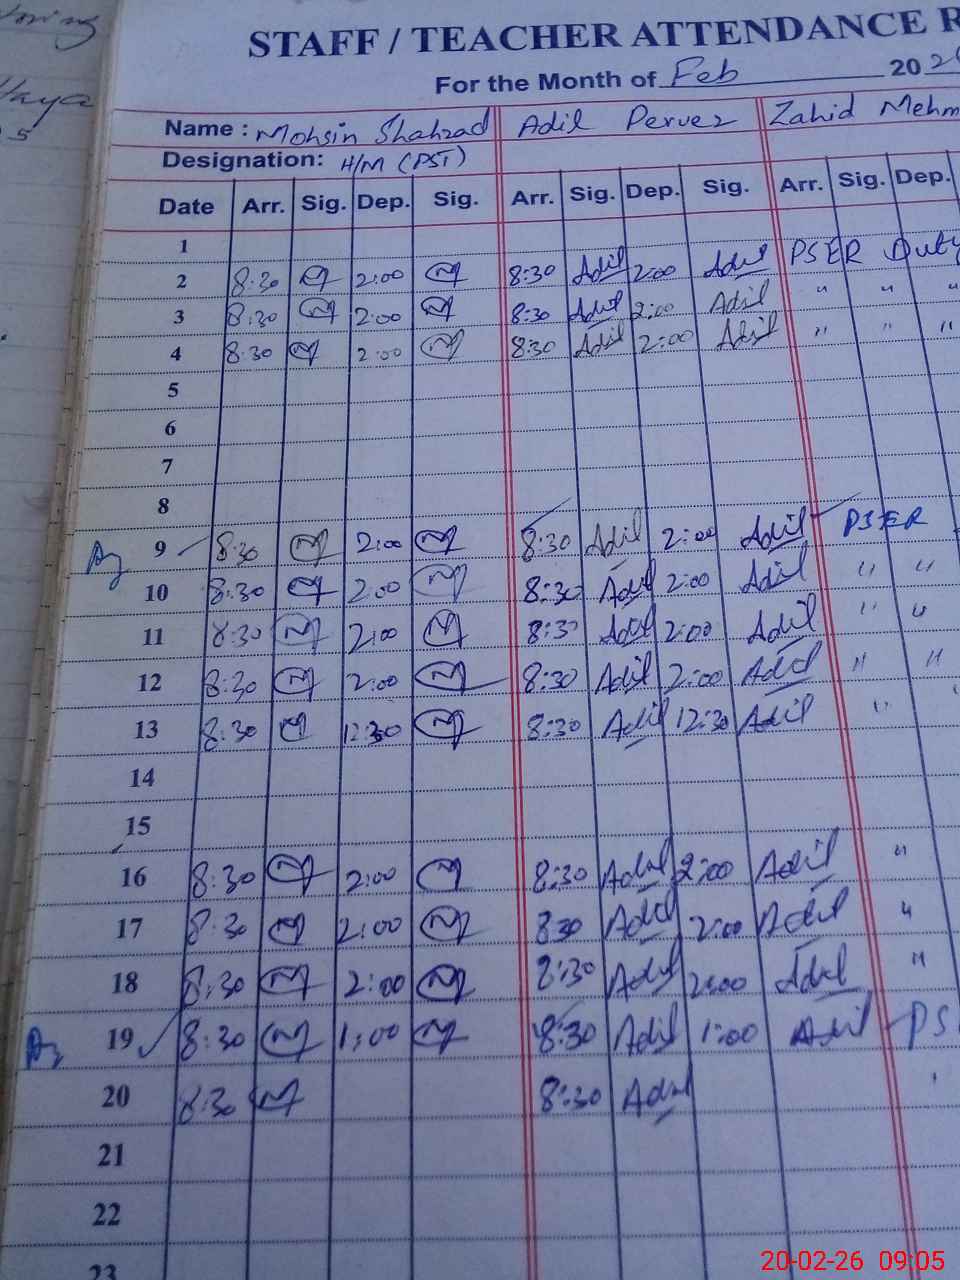 STAFF / TEACHER ATTENDANCE R
For the Month of Feb 202
Name : Mohsin Shahzad Adil Pervez Zahid Mehm
Designation: H/M (PST)
Date Arr. Sig. Dep. Sig. Arr. Sig. Dep. Sig. Arr. Sig. Dep.
1
2 8:30 2:00 8:30 Adil 2:00 Adil PSER Duty
3 8:30 2:00 8:30 Adil 2:00 Adil " " "
4 8:30 2:00 8:30 Adil 2:00 Adil " " "
5
6
7
8
9 8:30 2:00 8:30 Adil 2:00 Adil PSER
10 8:30 2:00 8:30 Adil 2:00 Adil " "
11 8:30 2:00 8:30 Adil 2:00 Adil " "
12 8:30 2:00 8:30 Adil 2:00 Adil " "
13 8:30 12:30 8:30 Adil 12:30 Adil "
14
15
16 8:30 2:00 8:30 Adil 2:00 Adil "
17 8:30 2:00 830 Adil 2:00 Adil "
18 8:30 2:00 8:30 Adil 2:00 Adil "
19 8:30 1:00 8:30 Adil 1:00 Adil PS
20 8:30 8:30 Adil
21
22
23
20-02-26 09:05